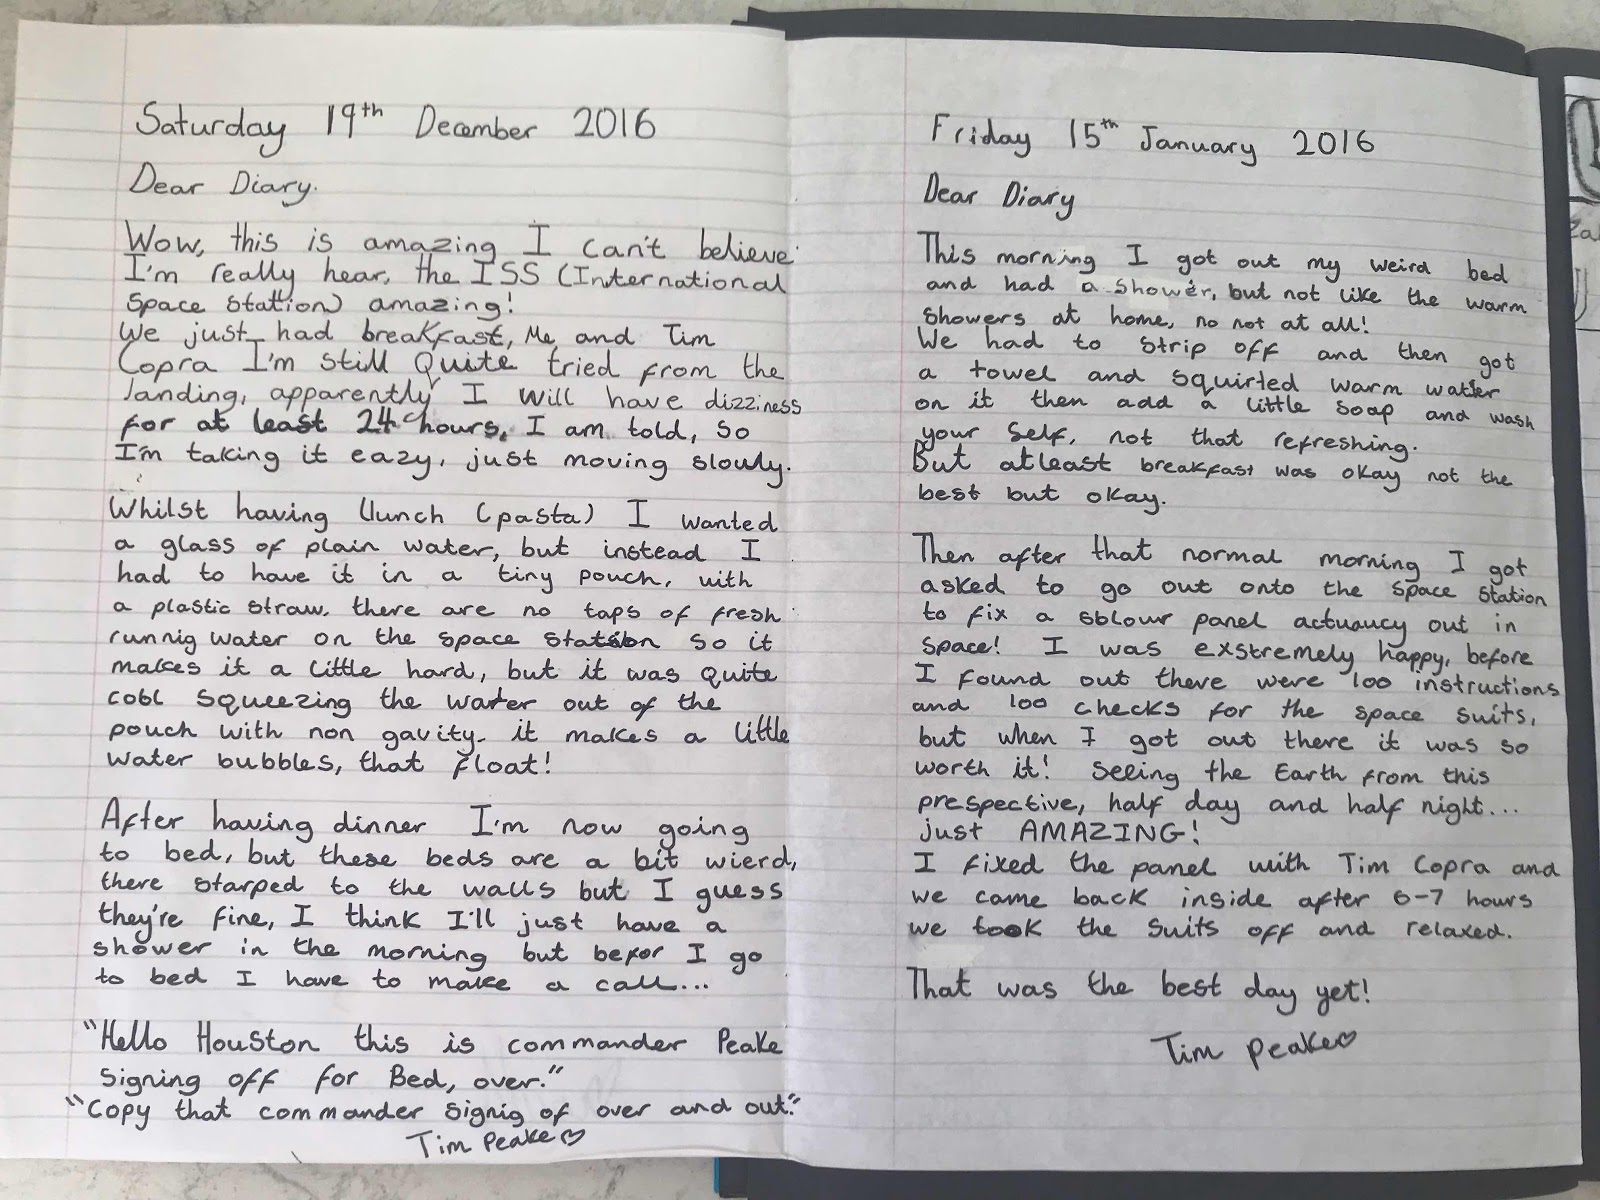 Saturday 19th December 2016
Dear Diary.
Wow, this is amazing I can't believe
I'm really hear, the ISS (International
Space Station) amazing!
We just had breakfast, Me and Tim
Copra I'm still Quite tried from the
landing, apparently I will have dizziness
for at least 24 hours, I am told, so
I'm taking it eazy, just moving slowly.
Whilst having llunch (pasta) I wanted
a glass of plain water, but instead I
had to have it in a tiny pouch, with
a plastic straw. there are no taps of fresh
runnig water on the space station so it
makes it a little hard, but it was Quite
cool squeezing the water out of the
pouch with non gavity. it makes a little
water bubbles, that float!
After having dinner I'm now going
to bed, but these beds are a bit wierd,
there starped to the walls but I guess
they're fine, I think I'll just have a
shower in the morning but befor I go
to bed I have to make a call...
"Hello Houston this is commander Peake
signing off for Bed, over."
"Copy that commander signig of over and out."
Tim Peake♡
Friday 15th January 2016
Dear Diary
This morning I got out my weird bed
and had a shower, but not like the warm
showers at home, no not at all!
We had to strip off and then got
a towel and squirted warm water
on it then add a little soap and wash
your self, not that refreshing.
But atleast breakfast was okay not the
best but okay.
Then after that normal morning I got
asked to go out onto the space station
to fix a panel out in
space! I was exstremely happy, before
I found out there were 100 instructions
and 100 checks for the space suits,
but when I got out there it was so
worth it! Seeing the Earth from this
prespective, half day and half night...
just AMAZING!
I fixed the panel with Tim Copra and
we came back inside after 6-7 hours
we took the suits off and relaxed.
That was the best day yet!
Tim Peake♡